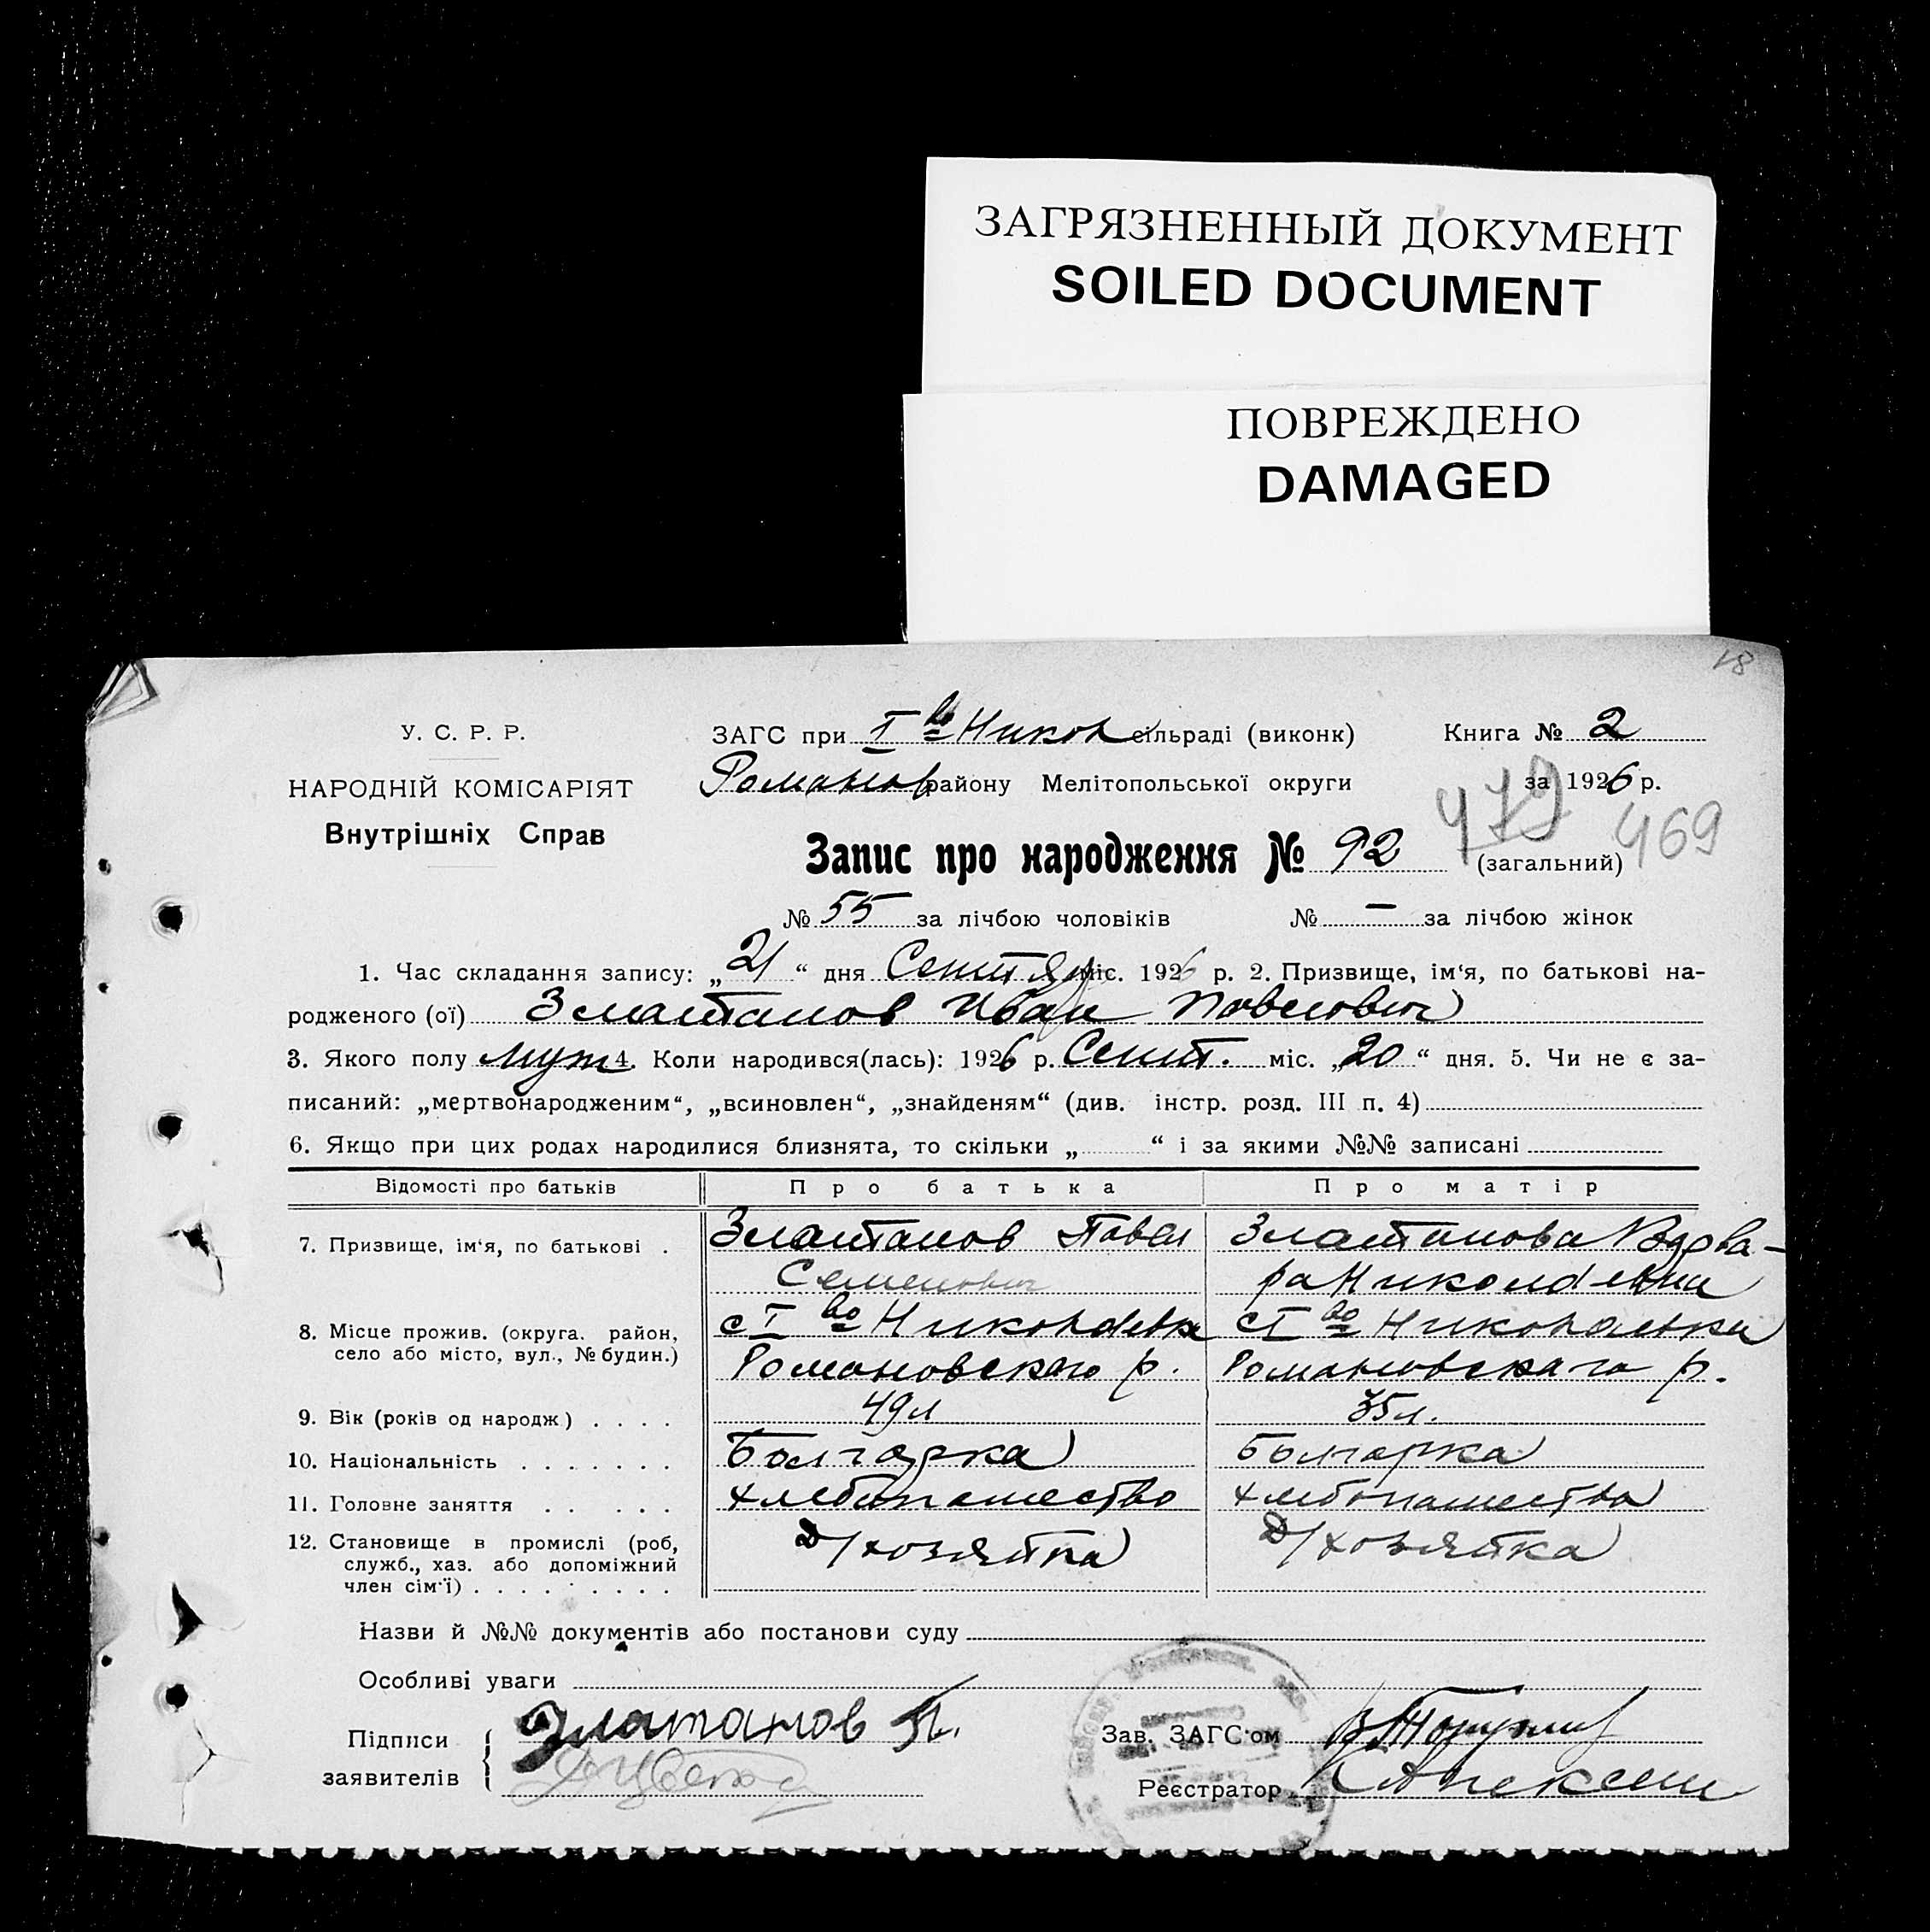 ЗАГРЯЗНЕННЫЙ ДОКУМЕНТ
SOILED DOCUMENT
ПОВРЕЖДЕНО
DAMAGED
18
У. С. Р. Р.
НАРОДНІЙ КОМІСАРІЯТ
Внутрішніх Справ
ЗАГС при I во Никол сільраді (виконк)
Книга № 2
Романов району Мелітопольської округи
за 1926 р.
479 469
Запис про народження № 92 (загальний)
№ 55 за лічбою чоловіків № — за лічбою жінок
1. Час складання запису: „21“ дня Сентяр міс. 1926 р. 2. Призвище, ім‘я, по батькові на-
родженого (ої) Златанов Иван Павлович
3. Якого полу муж 4. Коли народився(лась): 1926 р. Сент. міс. „20“ дня. 5. Чи не є за-
писаний: „мертвонародженим“, „всиновлен“, „знайденям“ (див. інстр. розд. III п. 4)
6. Якщо при цих родах народилися близнята, то скільки „ “ і за якими №№ записані
Відомості про батьків Про батька Про матір
7. Призвище, ім‘я, по батькові . Златанов Павел Златанова
Семенович Николаевна
8. Місце прожив. (округа. район, село або місто, вул., № будин.) с I во Николаевка с I во Николаевка
Романовского р. Романовскаго р.
9. Вік (років од народж) . . . . 49 л 35 л.
10. Національність . . . . . . . Болгарка Болгарка
11. Головне заняття . . . . . хлебопашество хлебопашество
12. Становище в промислі (роб, служб., хаз. або допоміжний член сім‘ї) . . . . . . . . . Д/хозяйка Д/хозяйка
Назви й №№ документів або постанови суду
Особливі уваги
Підписи
заявителів
Златанов П.
Зав. ЗАГС‘ом
Реєстратор